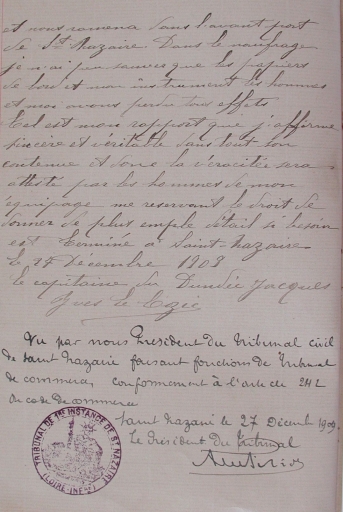 et nous ramena dans l'avant port
de St Nazaire. Dans le naufrage
je n'ai pu sauver que les papiers
de bord et mon instrument les hommes
et moi avons perdu tous effets
Tel est mon rapport que j'affirme
sincère et véritable dans tout son
contenue et donc la véracitée sera
attesté par les hommes de mon
équipage me reservant le droit de
donner de plus emple détail si besoin
est Terminé à Saint-Nazaire
le 27 Décembre 1909
le capitaine du Dundée Jacques
Yves Le
Vu par nous President du Tribunal civil
de Saint Nazaire faisant fonctions de Tribunal
de commerce, conformément à l'article 242
du code de commerce
Saint Nazaire le 27 Décembre 1909
Le Président du Tribunal
TRIBUNAL DE 1RE INSTANCE DE ST NAZAIRE
(LOIRE-INFRE)